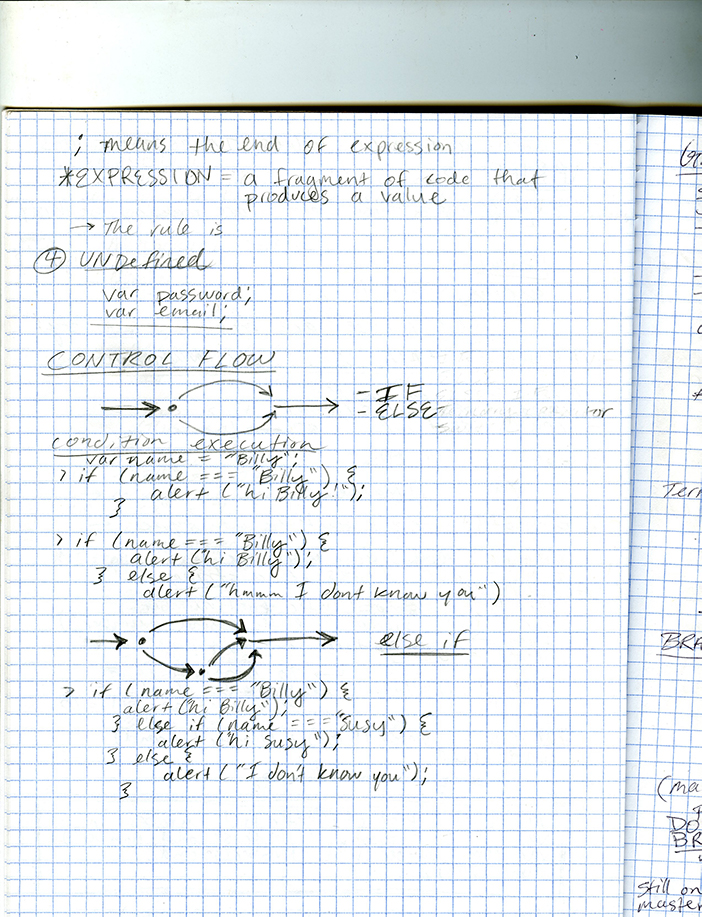 ; means the end of expression
*EXPRESSION = a fragment of code that
produces a value
→ The rule is
④ UNDefined
var password;
var email;
CONTROL FLOW
- IF
- ELSE
condition execution
var name = "Billy";
> if (name === "Billy") {
alert ("hi Billy!");
}
> if (name === "Billy") {
alert ("hi Billy");
} else {
alert ("hmmm I dont know you")
else if
> if (name === "Billy") {
alert ("hi Billy");
} else if (name === "Susy") {
alert ("hi Susy");
} else {
alert ("I don't know you");
}
DO
still on
master